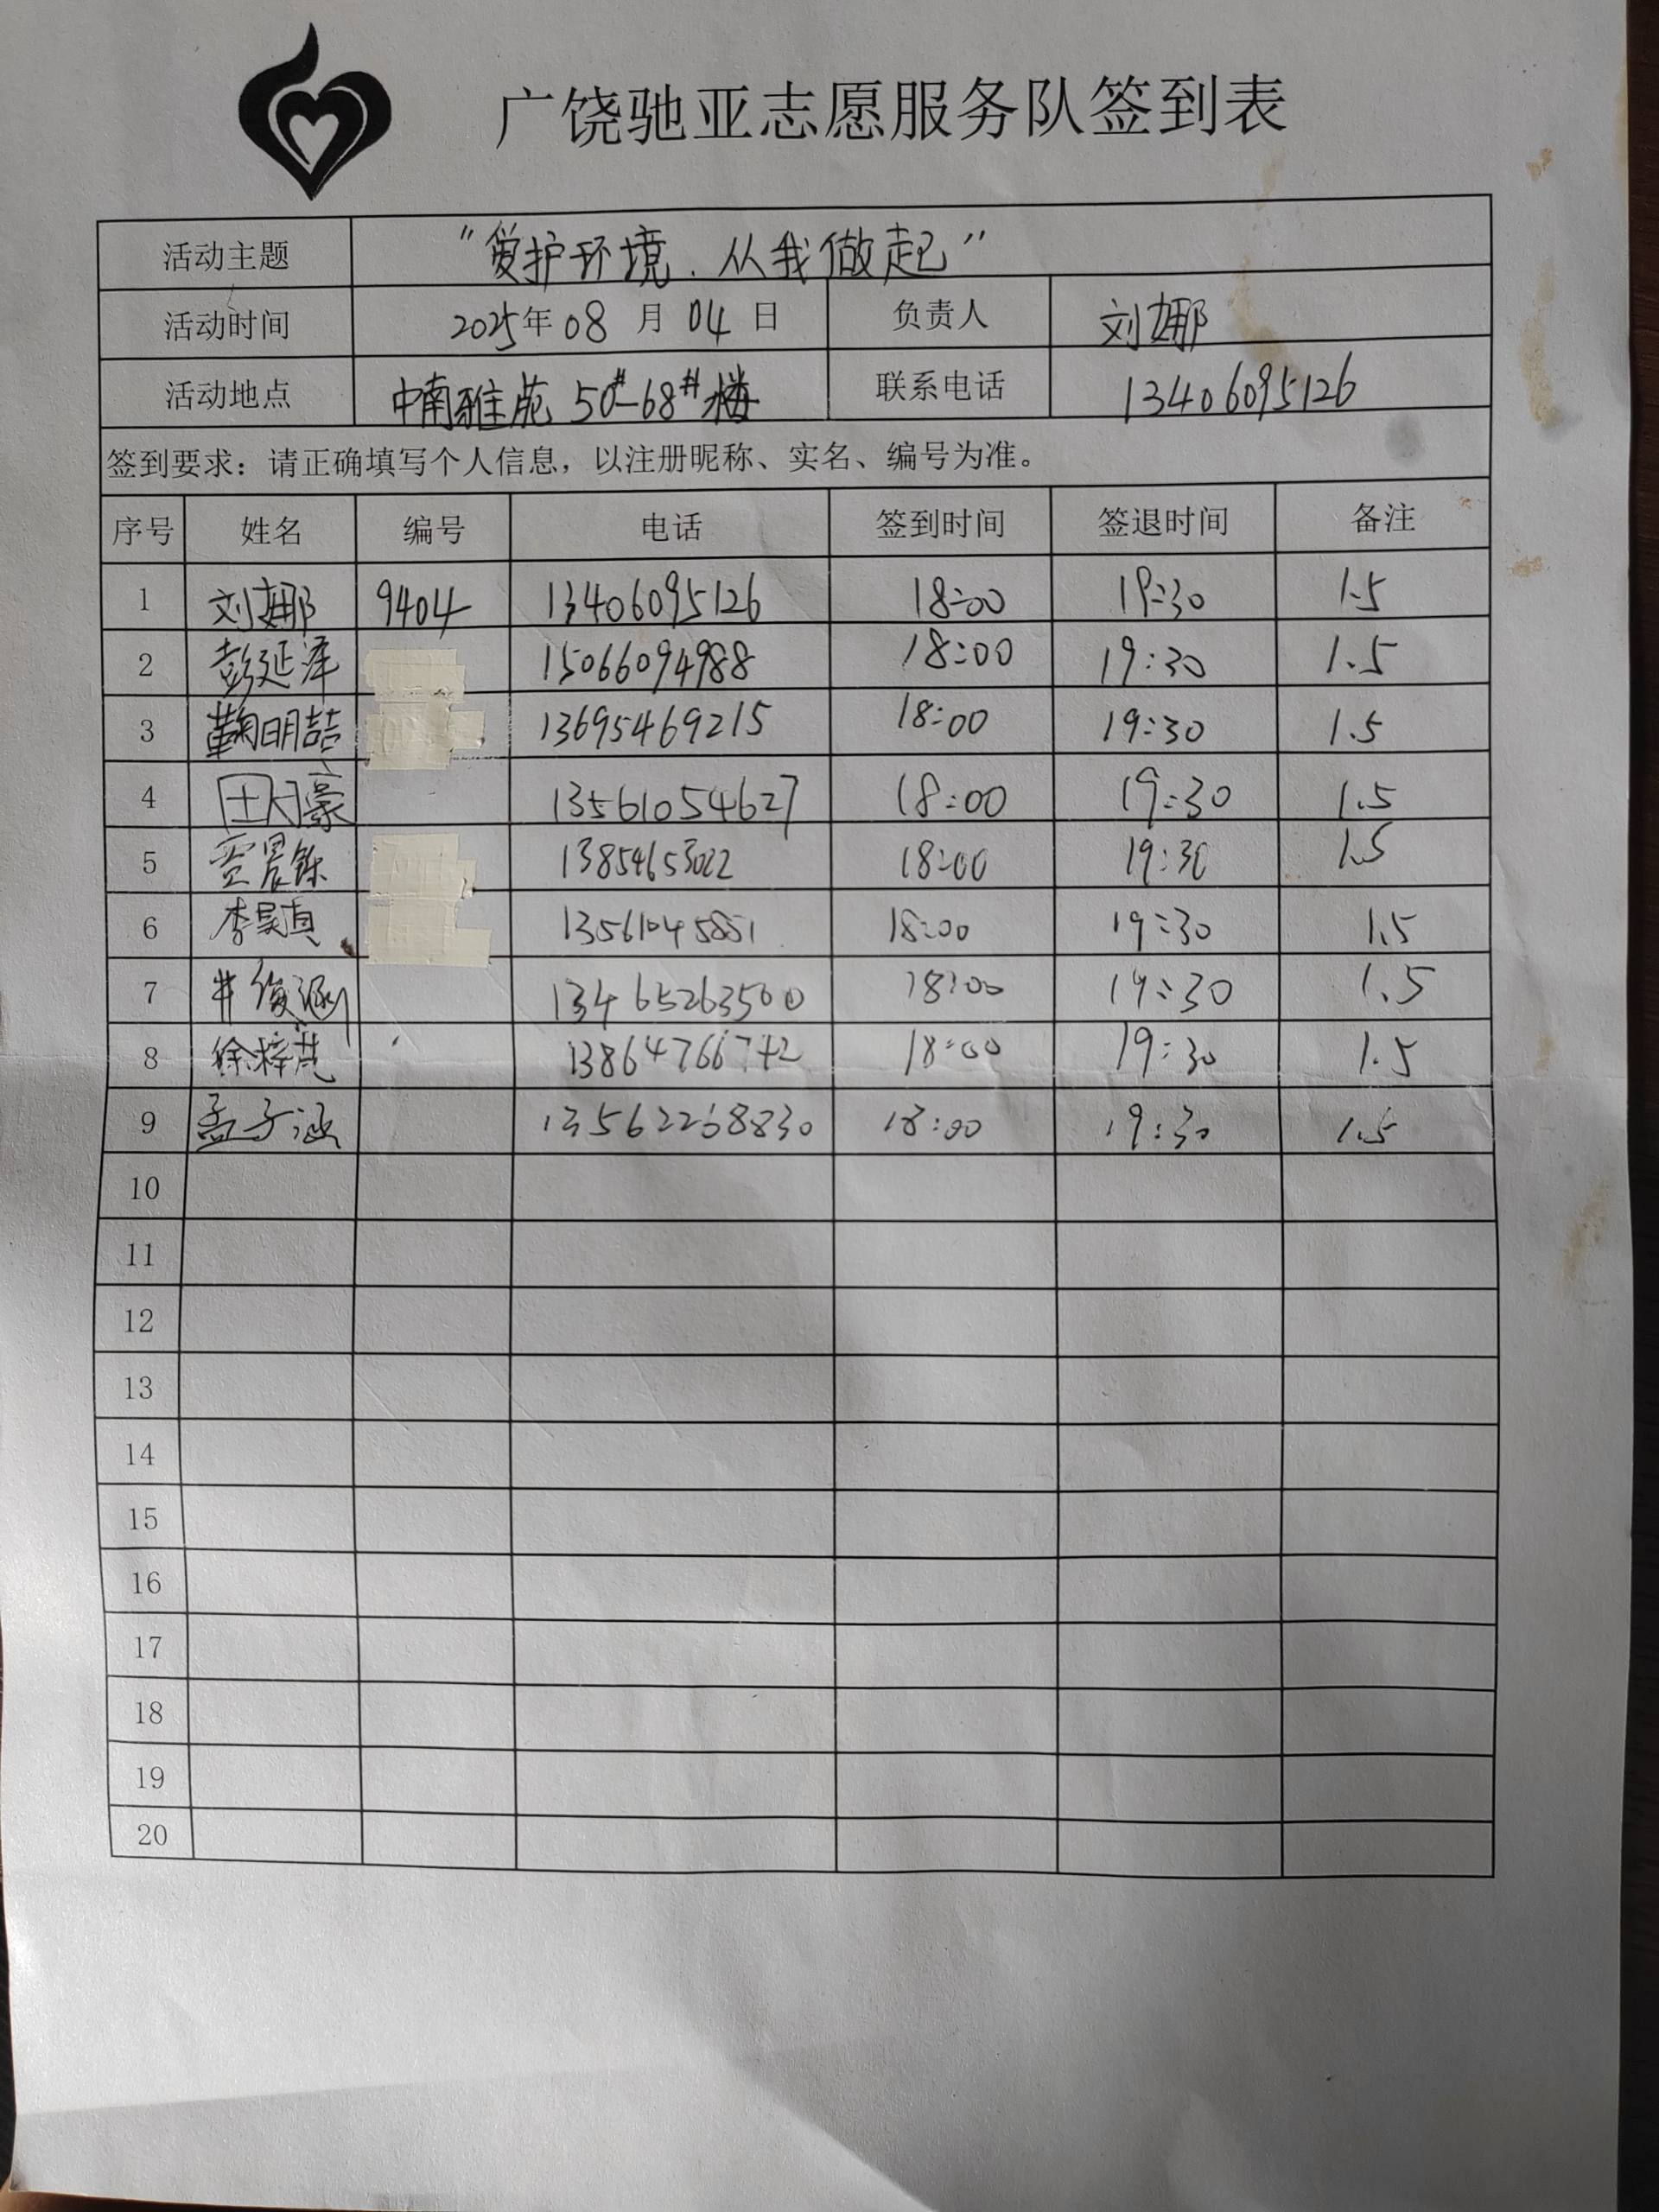 广饶驰亚志愿服务队签到表
活动主题 "爱护环境.从我做起"
活动时间 2025年08月04日 负责人 刘娜
活动地点 中南雅苑 50#-68#楼 联系电话 13406095126
签到要求：请正确填写个人信息，以注册昵称、实名、编号为准。
序号 姓名 编号 电话 签到时间 签退时间 备注
1 刘娜 9404 13406095126 18:00 19:30 1.5
2 彭延泽 15066094988 18:00 19:30 1.5
3 鞠明喆 13695469215 18:00 19:30 1.5
4 13561054627 18:00 19:30 1.5
5 13854653022 18:00 19:30 1.5
6 李昊真 13561045851 18:00 19:30 1.5
7 井俊涵 13465263500 18:00 19:30 1.5
8 徐梓芃 13864766742 18:00 19:30 1.5
9 孟子涵 13562268830 18:00 19:30 1.5
10
11
12
13
14
15
16
17
18
19
20